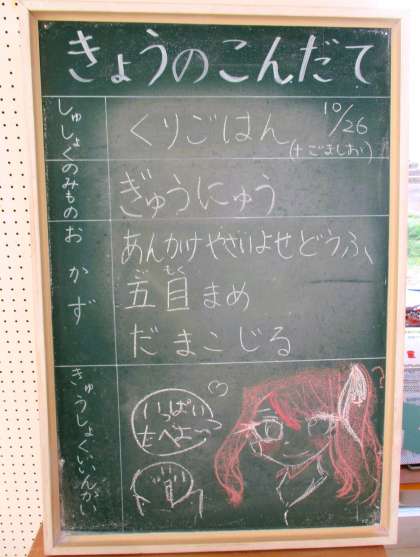 きょうのこんだて
しゅしょく
くりごはん
10/26
(+ごましお)
のみもの
ぎゅうにゅう
おかず
あんかけやさいよせどうふ
ごもく
五目まめ
だまこじる
きゅうしょくいいんかい
いっぱい
たべよー
?